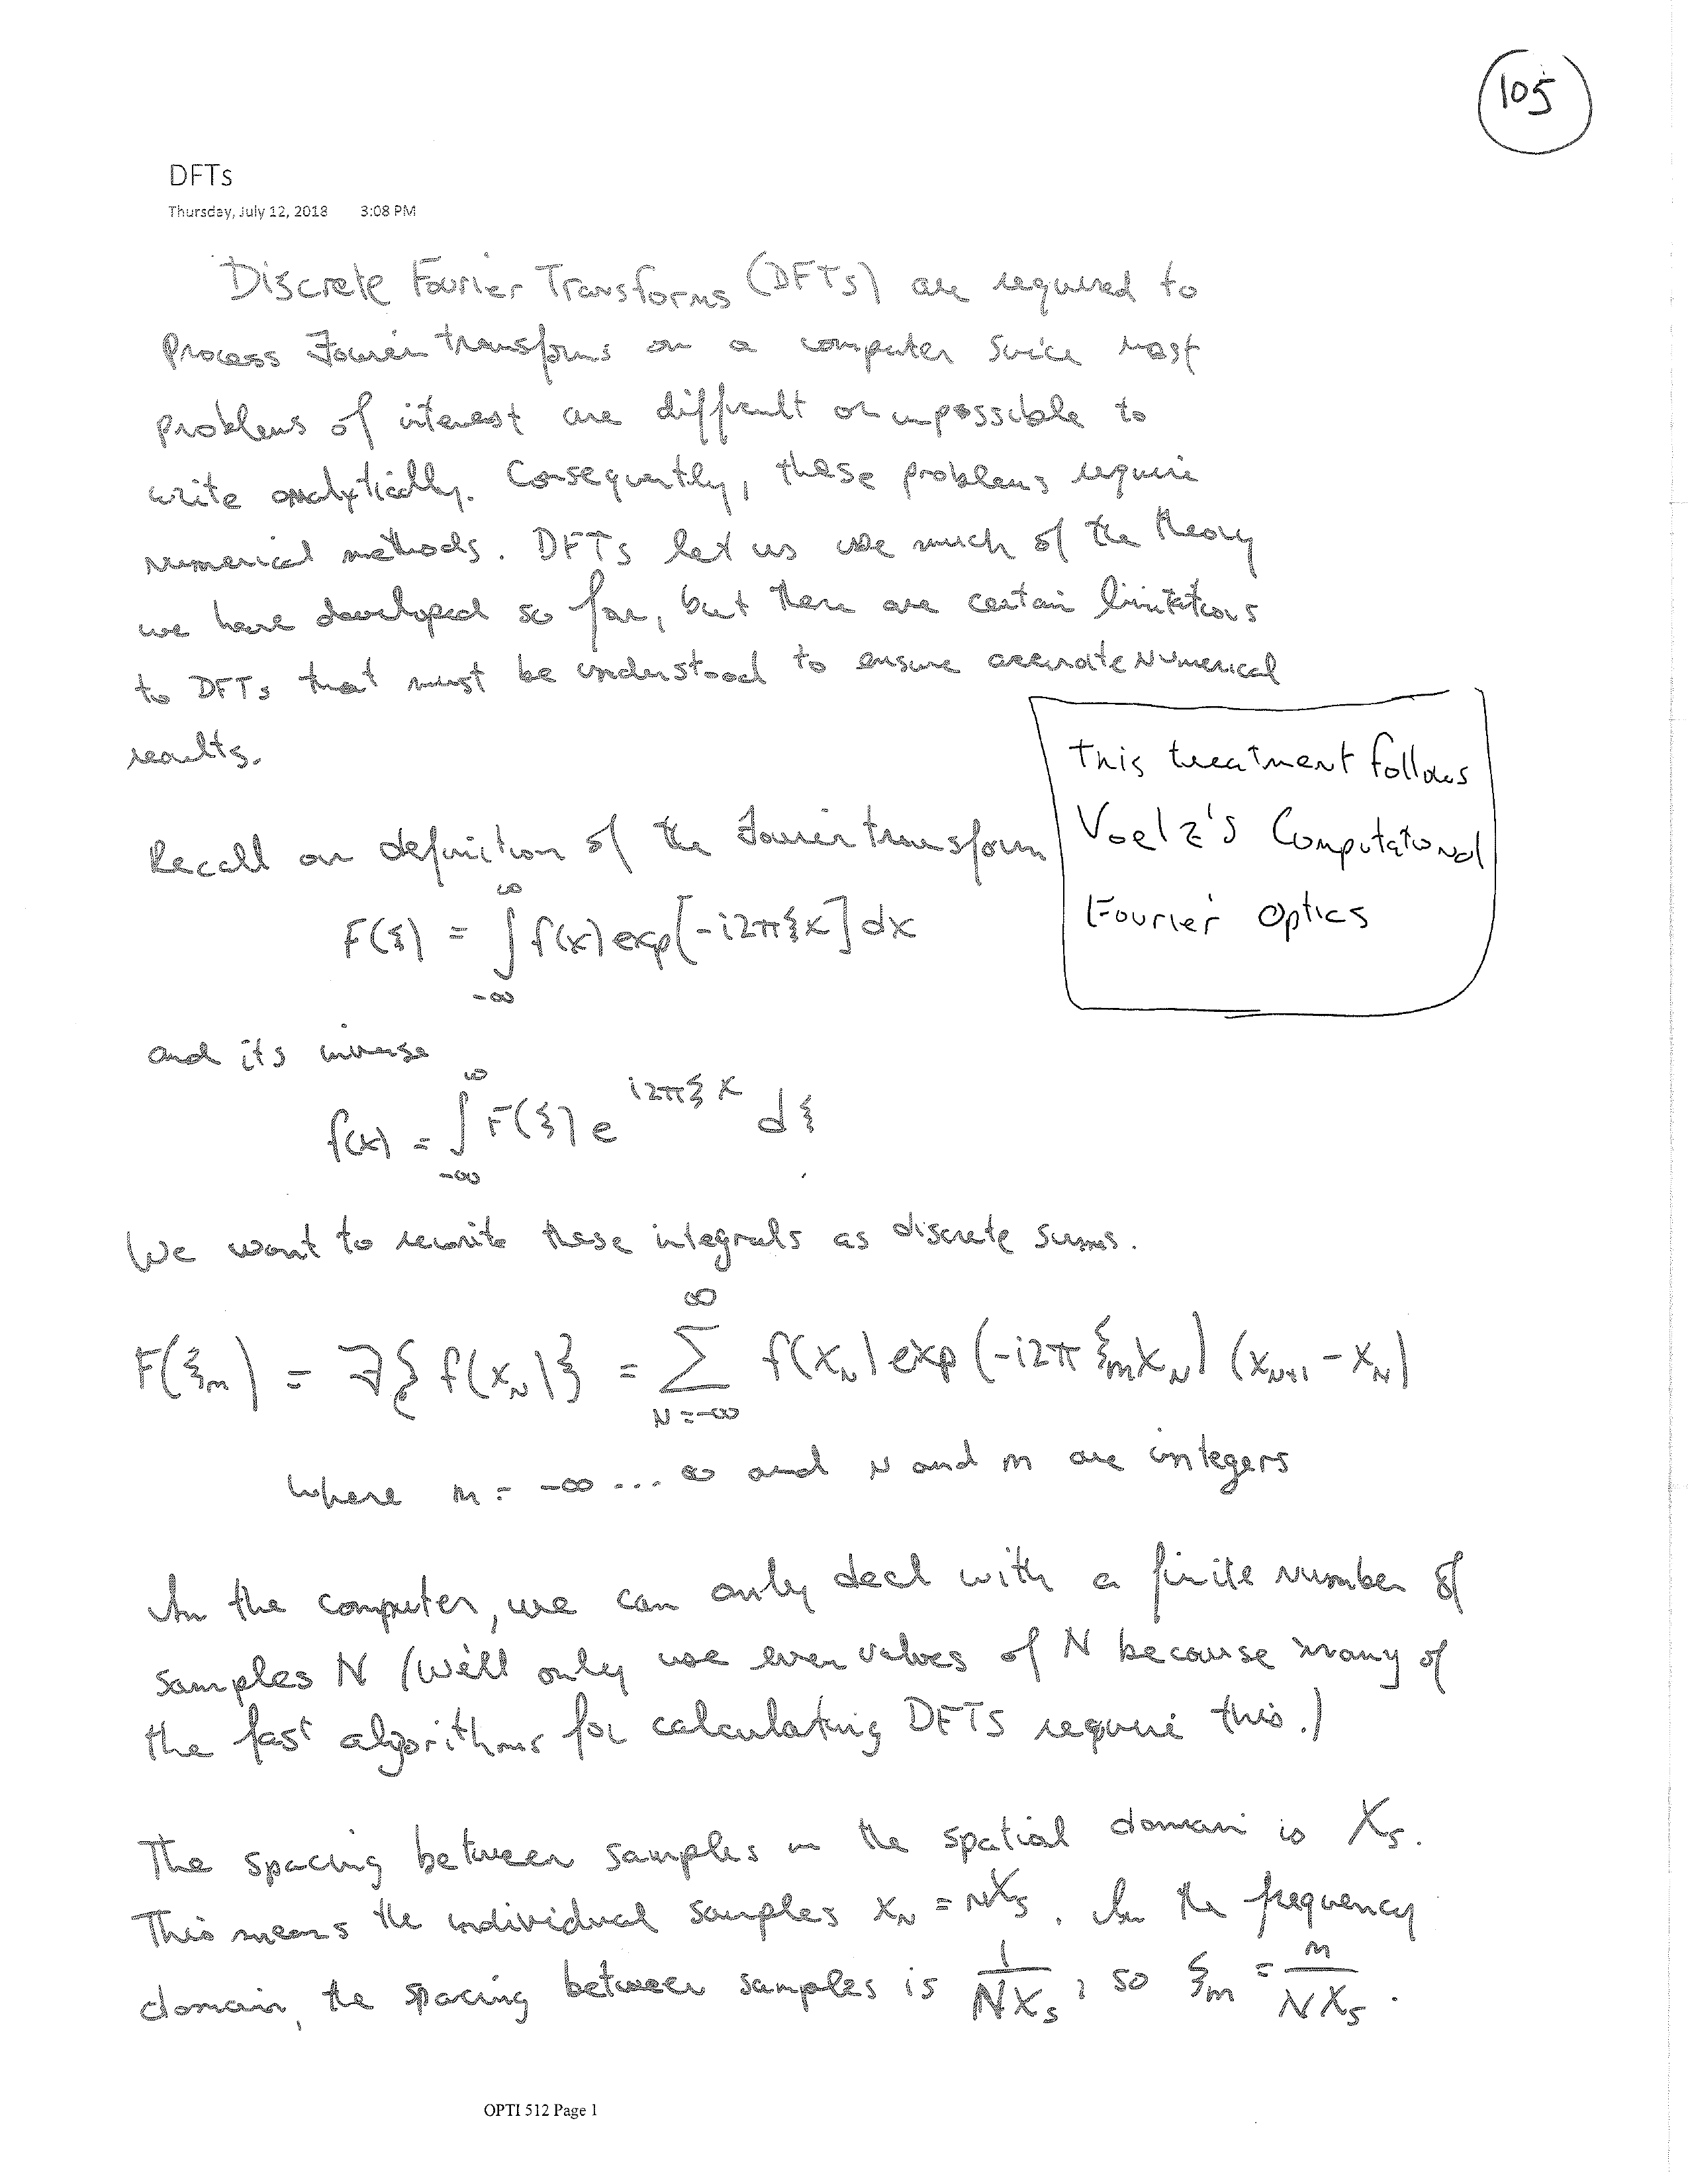 105
DFTs
Thursday, July 12, 2018 3:08 PM
Discrete Fourier Transforms (DFTs) are required to
Process Fourier transforms on a computer since most
problems of interest are difficult or impossible to
write analytically. Consequently, these problems require
numerical methods. DFTs let us use much of the theory
we have developed so far, but there are certain limitations
to DFTs that must be understood to ensure accurate numerical
results.
This treatment follows
Voelz's Computational
Fourier Optics
Recall our definition of the Fourier transform
F(ξ) = ∫_{-∞}^{∞} f(x) exp[-i2πξx] dx
and its inverse
f(x) = ∫_{-∞}^{∞} F(ξ) e^{i2πξx} dξ
We want to rewrite these integrals as discrete sums.
F(ξ_m) = ℱ{f(x_N)} = Σ_{N=-∞}^{∞} f(x_N) exp(-i2πξ_m x_N) (x_{N+1} - x_N)
where m = -∞ ... ∞ and N and m are integers
In the computer, we can only deal with a finite number of
samples N (We'll only use even values of N because many of
the fast algorithms for calculating DFTS require this.)
The spacing between samples in the spatial domain is X_s.
This means the individual samples x_N = NX_s. In the frequency
domain, the spacing between samples is 1/(NX_s), so ξ_m = m/(NX_s).
OPTI 512 Page 1